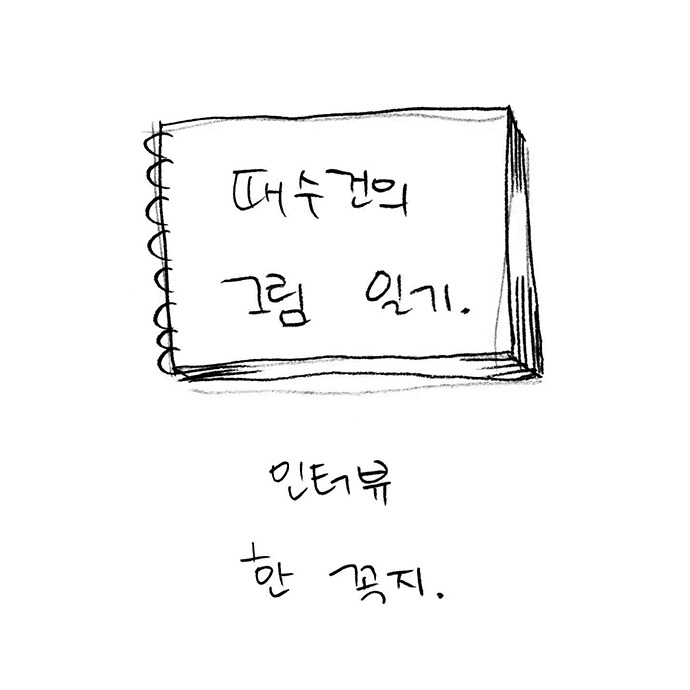 때수건의
그림 일기.
인터뷰
한 꼭지.